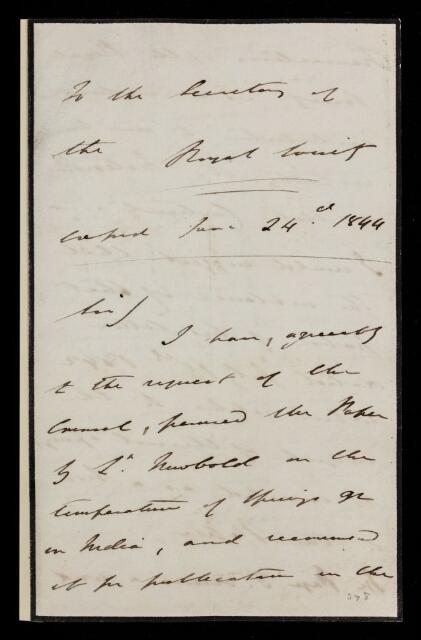 To the Secretary of
the Royal Society
June 24.d 1844
Sir/
I have, agreeably
to the request of the
Council, perused the Paper
by Lt. Newbold on the
temperature of Springs &c
in India, and recommend
it for publication in the